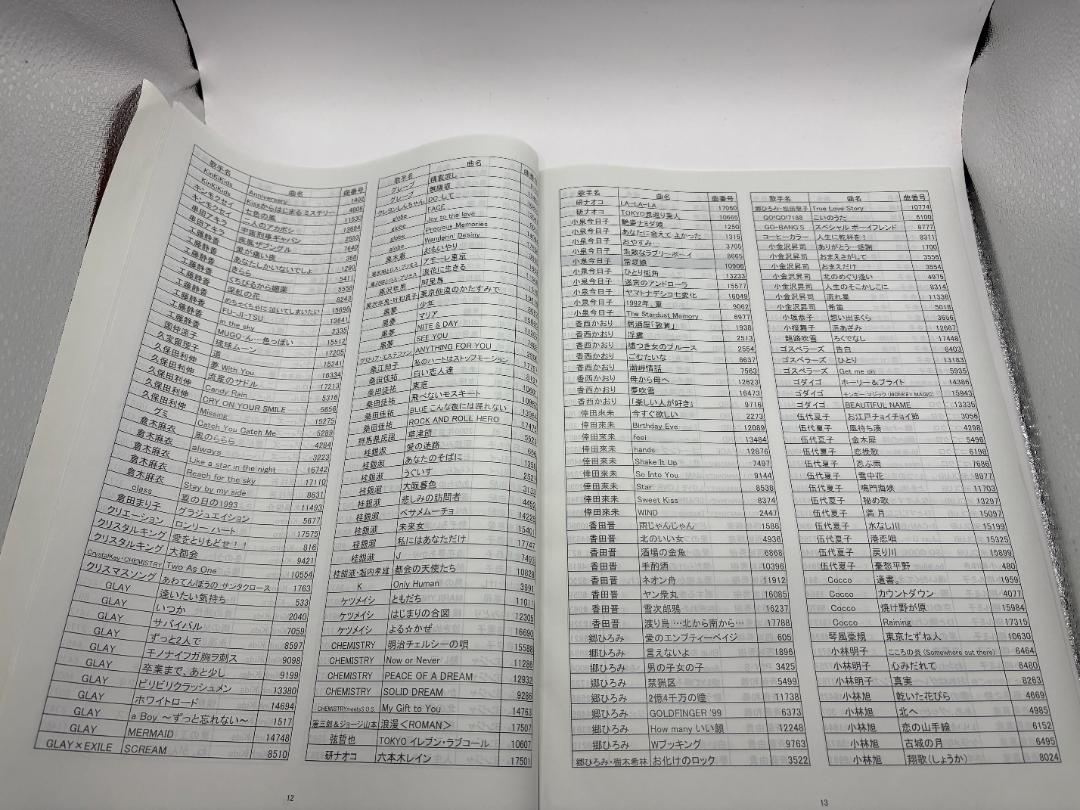 歌手名 曲名 曲番号
KinKiKids Anniversary 1400
KinKiKids Kissからはじまるミステリー 4606
キンモクセイ 七色の風 11530
キンモクセイ 二人のアカボシ
串田アキラ 宇宙刑事ギャバン
串田アキラ 疾風ザブングル
工藤静香 愛が痛い夜
工藤静香 あなたしかいないでしょ
工藤静香 きらら
工藤静香 くちびるから媚薬
工藤静香 深紅の花
工藤静香 めちゃくちゃに泣いてしまいたい
工藤静香 FU-JI-TSU
工藤静香 in the sky
工藤静香 MUGO・ん…色っぽい
国仲涼子 琉球ムーン
久宝留理子 道
久保田利伸 夢 With You
久保田利伸 流星のサドル
久保田利伸 Candy Rain 5316
久保田利伸 CRY ON YOUR SMILE 5656
久保田利伸 Missing 15275
グミ Catch You Catch Me 5289
倉木麻衣 風のららら 4294
倉木麻衣 always 3223
倉木麻衣 Like a star in the night 16742
倉木麻衣 Reach for the sky 17110
倉木麻衣 Stay by my side 8631
class 夏の日の1993 11493
倉田まり子 グラジュエイション 5677
クリエーション ロンリー・ハート 17575
クリスタルキング 愛をとりもどせ!! 816
クリスタルキング 大都会 9421
CryptoKey・CHEMISTRY Two As One 10554
クリスマスソング あわてんぼうのサンタクロース 1763
GLAY 逢いたい気持ち 533
GLAY いつか 2040
GLAY サバイバル 7059
GLAY ずっと2人で 8597
GLAY モノナイフガ胸ヲ刺ス 9098
GLAY 卒業まで、あと少し 9199
GLAY ビリビリクラッシュメン 13380
GLAY ホワイトロード 14694
GLAY a Boy ~ずっと忘れない~ 1517
GLAY MERMAID 14748
GLAY×EXILE SCREAM 8510
12
歌手名 曲名
グレープ 精霊流し
グレープ 無縁坂
クレヨンしんちゃん DO-して
globe FACE
globe Joy to the love
globe Precious Memories
globe Wanderin' Destiny
おもいやり
アモーレ東京
浪花に生きる
阿星馬
東京俄雨のかたすみで
黒夢 少年
黒夢 マリア
黒夢 NITE & DAY
黒夢 SEE YOU
グロリア・エステファン ANYTHING FOR YOU
桑江知子 私のハートはストップモーション
桑田佳祐 白い恋人達
桑田佳祐 東京
桑田佳祐 飛べないモスキート
桑田佳祐 BLUE こんな夜には踊れない
桑田佳祐 ROCK AND ROLL HERO
群馬県民謡 草津節
桂銀淑 愛の迷路
桂銀淑 あなたのそばに
桂銀淑 うぐいす
桂銀淑 大阪暮色
桂銀淑 悲しみの訪問者
桂銀淑 ベサメムーチョ
桂銀淑 未来女
桂銀淑 私にはあなただけ
桂銀淑 J
桂銀淑・堀内孝雄 都会の天使たち 10828
K Only Human 3591
ケツメイシ ともだち
ケツメイシ はじまりの合図 12305
ケツメイシ よるかぜ 16690
CHEMISTRY 明治チェルシーの唄 15588
CHEMISTRY Now or Never 11286
CHEMISTRY PEACE OF A DREAM 12932
CHEMISTRY SOLID DREAM 9286
CHEMISTRY meets S.O.S. My Gift to You 14763
浪漫<ROMAN> 17507
弦哲也 TOKYO イレブン・ラブコール 10607
研ナオコ 六本木レイン 17501
歌手名 曲名 曲番号
研ナオコ LA-LA-LA 17050
研ナオコ TOKYO見返り美人 10666
小泉今日子 艶姿ナミダ娘 1250
小泉今日子 あなたに会えてよかった 1315
小泉今日子 おやすみ… 3705
小泉今日子 素敵なラブリーボーイ 8665
小泉今日子 常夏娘 10906
小泉今日子 ひとり街角 13233
小泉今日子 迷宮のアンドローラ 15577
小泉今日子 ヤマトナデシコ七変化 16049
小泉今日子 1992年、夏 9062
小泉今日子 The Stardust Memory 8977
香西かおり 居酒屋「敦賀」 1938
香西かおり 浮雲 2513
香西かおり 嘘つき女のブルース 2554
香西かおり ごむたいな 6637
香西かおり 潮岬情話 7562
香西かおり 母から母へ 12623
香西かおり 夢吹雪 16473
香西かおり 「楽しい人が好き」 9716
倖田來未 今すぐ欲しい 2273
倖田來未 Birthday Eve 12089
倖田來未 feel 13484
倖田來未 hands 12676
倖田來未 Shake It Up 7497
倖田來未 So Into You 9144
倖田來未 Star 8538
倖田來未 Sweet Kiss 8374
倖田來未 WIND 2447
香田晋 雨じゃんじゃん 1586
香田晋 北のいい女 4936
香田晋 酒場の金魚 6868
香田晋 手酌酒 10396
香田晋 ネオン舟 11912
香田晋 ヤン衆丸 16085
香田晋 雪次郎鴉 16237
香田晋 渡り鳥…北から南から… 17788
郷ひろみ 愛のエンプティーペイジ 605
郷ひろみ 言えないよ 1896
郷ひろみ 男の子女の子 3425
郷ひろみ 禁猟区 5499
郷ひろみ 2億4千万の瞳 11738
郷ひろみ GOLDFINGER '99 6373
郷ひろみ How many いい顔 12248
郷ひろみ Wブッキング 9763
郷ひろみ・樹木希林 お化けのロック 3522
歌手名 曲名 曲番号
郷ひろみ・松田聖子 True Love Story 10774
GO!GO!7188 こいのうた 6100
GO-BANG'S スペシャル ボーイフレンド 8777
コーヒーカラー 人生に乾杯を! 8311
小金沢昇司 ありがとう…感謝 1700
小金沢昇司 おまえさがして 3556
小金沢昇司 おまえだけ 3554
小金沢昇司 北のめぐり逢い 4975
小金沢昇司 人生のそこかしこに 8314
小金沢昇司 流れ星 11330
小金沢昇司 希笛 5018
小坂恭子 想い出まくら 3656
小桜舞子 浜あざみ 12667
越路吹雪 ろくでなし 17448
ゴスペラーズ 告白 6403
ゴスペラーズ ひとり 13183
ゴスペラーズ Get me on 5935
ゴダイゴ ホーリー＆ブライト 14386
ゴダイゴ モンキー・マジック(MONKEY MAGIC) 15843
ゴダイゴ BEAUTIFUL NAME 13335
伍代夏子 お江戸チョイチョイ節 3056
伍代夏子 風待ち湊 4298
伍代夏子 金木犀 5496
伍代夏子 恋挽歌 6198
伍代夏子 忍ぶ雨 7686
伍代夏子 雪中花 8977
伍代夏子 鳴門海峡 11703
伍代夏子 秘め歌 13297
伍代夏子 舞月 15097
伍代夏子 水なし川 15199
伍代夏子 港恋唄 15325
伍代夏子 戻り川 15899
伍代夏子 憂愁平野 480
Cocco 遺書。 1959
Cocco カウントダウン 4077
Cocco 焼け野が原 15984
Cocco Raining 17315
琴風豪規 東京たずね人 10630
小林明子 こころの炎(Somewhere out there) 6464
小林明子 心みだれて 6480
小林明子 真実 8263
小林旭 乾いた花びら 4669
小林旭 北へ 4985
小林旭 恋の山手線 6152
小林旭 古城の月 6495
小林旭 翔歌(しょうか) 8024
13